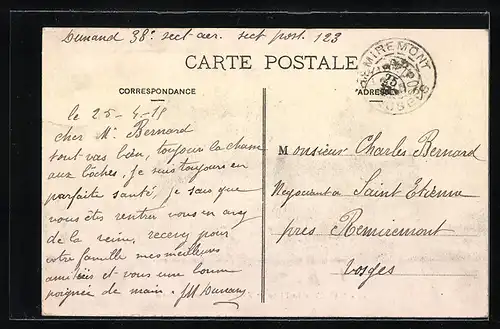 Durand 38e sect aer. sect post. 123
CARTE POSTALE
REMIREMONT
VOSGES
25
CORRESPONDANCE
ADRESSE
le 25-4-18
cher Mr Bernard
tout vas bien, toujours la chasse
aux bôches, je suis toujours en
parfaite santé, je sais que
vous êtes rentrer vous en avez
de la veine, recevez pour
votre famille mes meilleures
amitiées et vous une bonne
poignée de main.
Monsieur Charles Bernard
Negociant a Saint Etienne
près Remiremont
Vosges